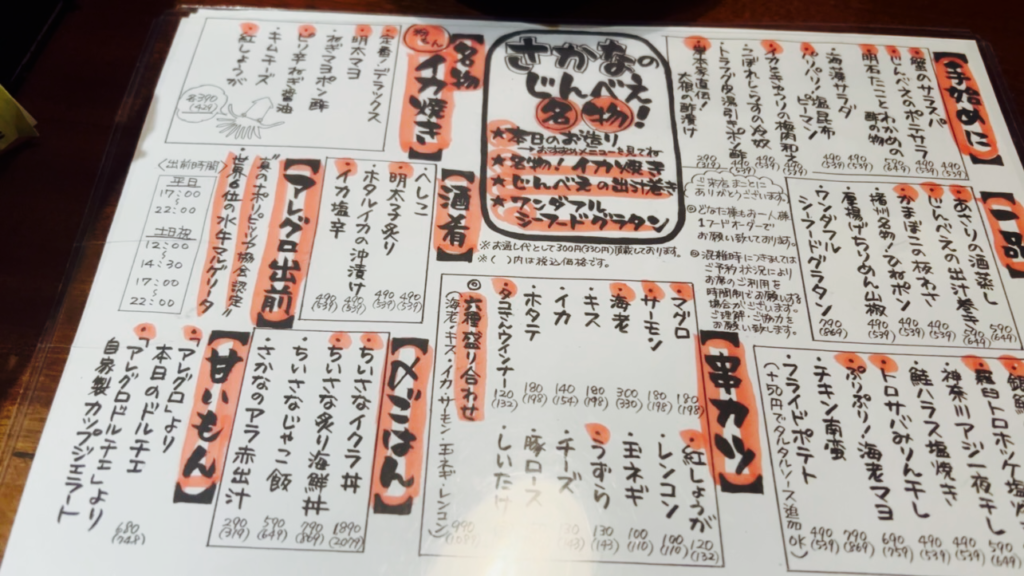 さかなの
じんべえ!
名物
★本日のお造り
★名物!イカ焼き
★じんべえの出汁巻き
★ワンダフル
シーフードグラタン
※お通し代として300円(330円)頂戴しております。
※( )内は税込価格です。
【手始めに】
・蟹のサラスパ
・じんべえのポテサラ
・明石だことわかめの
酢の物
・海藻サラダ
・パリパリ!塩昆布
ピーマン
・イカとキュウリの梅肉和え
・つぼれしらすの冷奴
・トラフグ皮湯引きポン酢
大根の酢漬け
ご来店まことに
ありがとうございます。
◎どなた様もお一人様
1フードオーダーで
お願い致しております。
◎混雑時につきましては
ご予約状況により
お席のご利用を
時間制でお願いする
場合がございます。
ご理解・ご協力を
お願い致します。
【一品】
・あさりの酒蒸し 590(649)
・じんべえの出汁巻き 590(649)
・かまぼこの板わさ 490(539)
・播州名物!ひねポン 490(539)
・唐揚げちりめん山椒 490(539)
・ワンダフル
シーフードグラタン 790(869)
・縞ホッケ塩焼
・神奈川アジ一夜干し 490(539)
・鮭ハラス塩焼き 490(539)
・トロサバみりん干し 690(759)
・ぷりぷり!海老マヨ 790(869)
・チキン南蛮 790(869)
・フライドポテト 490(539)
(+50円でタルタルソース追加OK)
【名物イカ焼き】
・定番!デラックス
・明太マヨ
・ねぎマヨポン酢
・ピリ辛ねぎ醤油
・キムチーズ
・紅しょうが
各390(429)
【酒肴】
・へしこ 490(539)
・明太子炙り 490(539)
・ホタルイカの沖漬け 490(539)
・イカ塩辛 490(539)
【アレグロ出前】
"真のナポリピッツァ協会認定"
"世界6位の水牛マルゲリータ"
〈出前時間〉
平日
17:00
~
22:00
土日祝
12:00
~
14:30
17:00
~
22:00
【串カツ】
・マグロ 180(198)
・サーモン 180(198)
・海老 300(330)
・キス 180(198)
・イカ 140(154)
・ホタテ 180(198)
・タコさんウインナー 120(132)
・紅しょうが 120(132)
・レンコン 100(110)
・玉ネギ 100(110)
・うずら 130(143)
・チーズ
・豚ロース
・しいたけ
◎六種盛り合わせ
(海老・キス・イカ・サーモン・玉ネギ・レンコン) 990
【〆ごはん】
・ちいさなイクラ丼 1890(2079)
・ちいさな炙り海鮮丼 790(869)
・ちいさなじゃこ飯 590(649)
・さかなのアラ赤出汁 290(319)
【甘いもん】
・「アレグロ」より
本日のドルチェ
・「アレグロドルチェ」より
自家製カップジェラート 680(748)